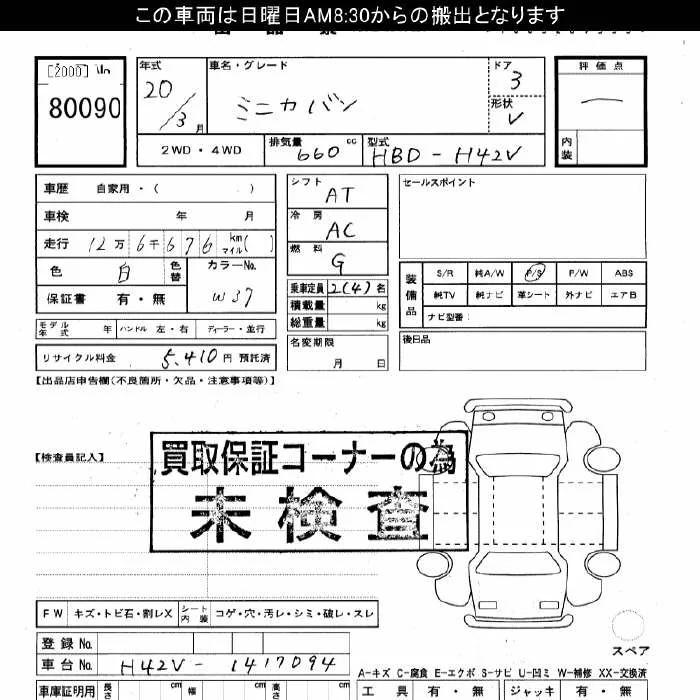 この車両は日曜日AM8:30からの搬出となります
[2000]
80090
年式 20/3月
車名・グレード ミニカバン
ドア 3
形状 V
評価点 一
内装
2WD・4WD
排気量 660 cc
型式 HBD-H42V
車歴 自家用・( )
車検 年 月
走行 12万6千676 km マイル( )
色 白 色替
カラーNo. W37
保証書 有・無
シフト AT
冷房 AC
燃料 G
乗車定員 2(4)名
積載量 kg
総重量 kg
名変期限 月 日
セールスポイント
装備品
S/R 純A/W P/S P/W ABS
純TV 純ナビ 革シート 外ナビ エアB
ナビ型番:
後日品
モデル年式 年 ハンドル 左・右 ディーラー・並行
リサイクル料金 5,410円 預託済
【出品店申告欄(不良箇所・欠品・注意事項等)】
【検査員記入】
買取保証コーナーの為
未検査
FW キズ・トビ石・割レX シート内装 コゲ・穴・汚レ・シミ・破レ・スレ
スペア
登録No.
車台No. H42V-1417094
A-キズ C-腐食 E-エクボ S-サビ U-凹ミ W-補修 XX-交換済
車庫証明用 長さ cm 幅 cm 高さ cm
工具 有・無 ジャッキ 有・無